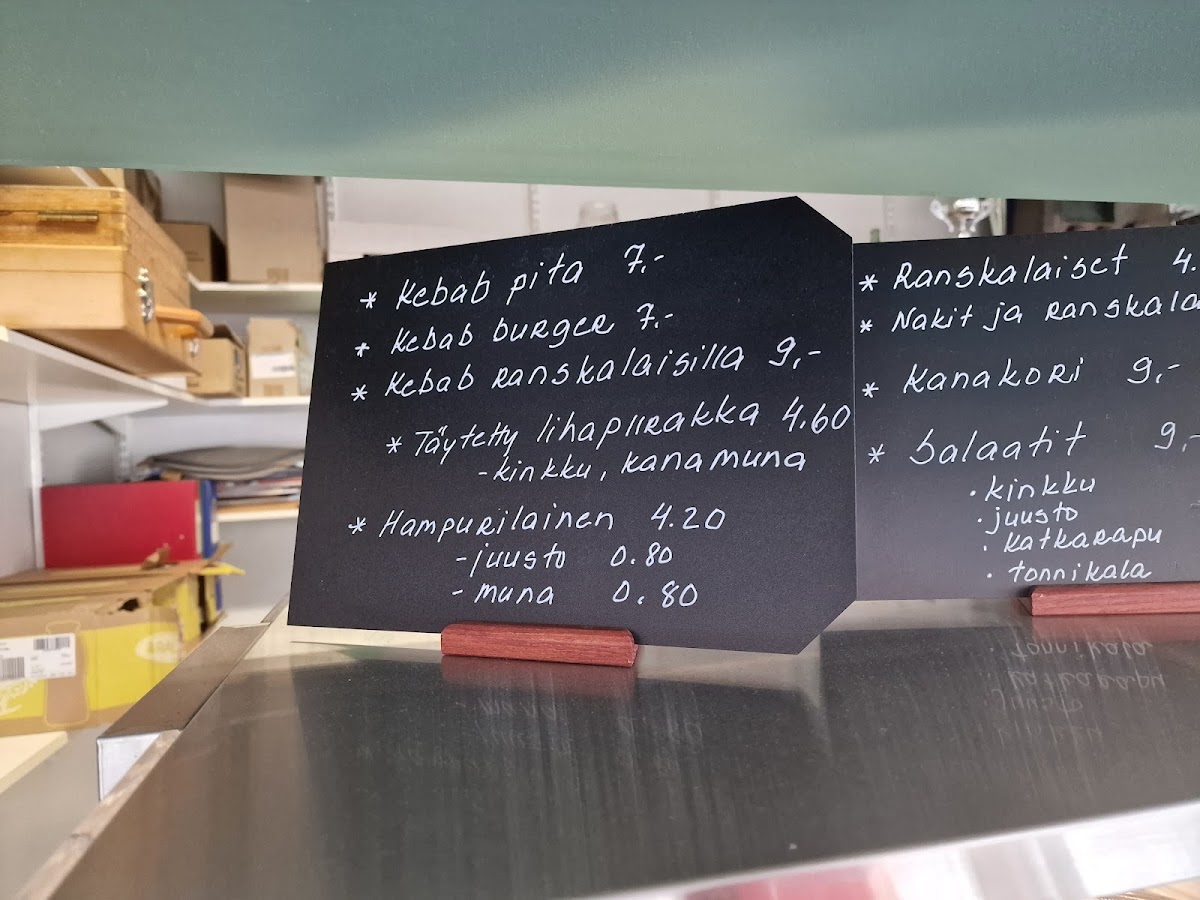 * Kebab pita 7.-
* Kebab burger 7.-
* Kebab ranskalaisilla 9,-
* Täytetty lihapiirakka 4.60
- kinkku, kanamuna
* Hampurilainen 4.20
- juusto 0.80
- muna 0.80
* Ranskalaiset 4.
* Nakit ja ranskala
* Kanakori 9,-
* Salaatit 9,-
· kinkku
· juusto
· katkarapu
· tonnikala